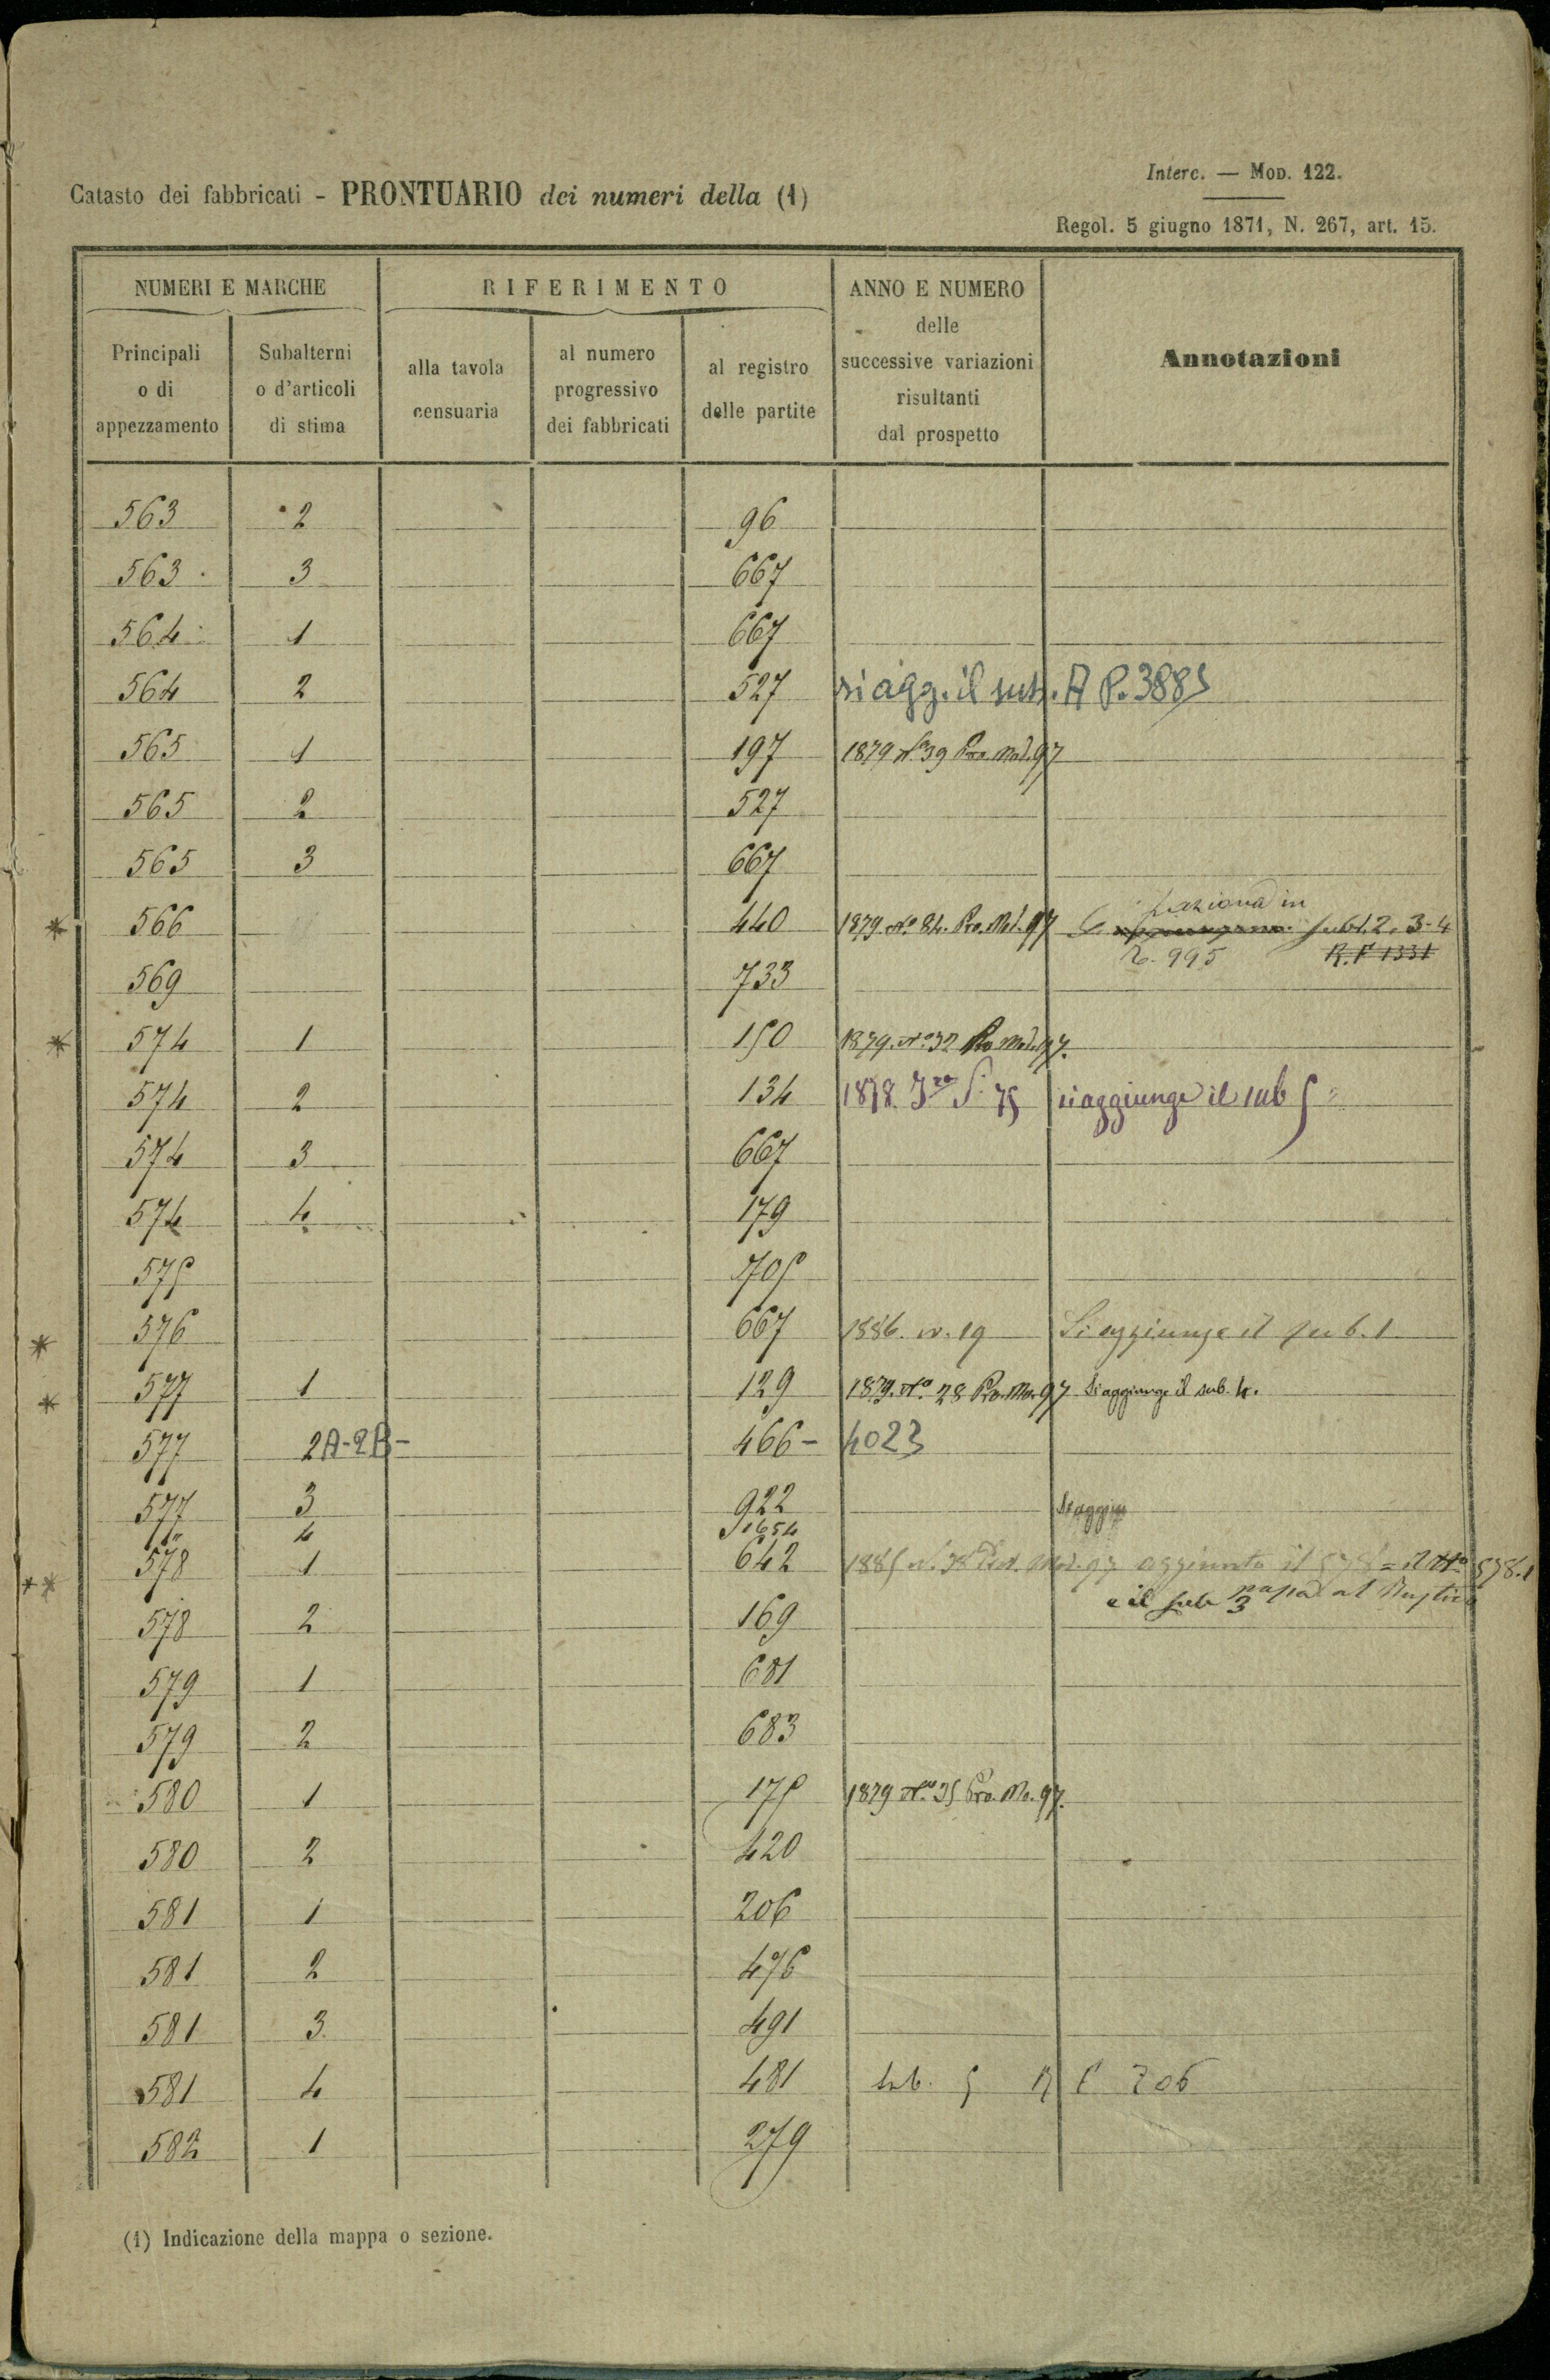 Interc. — Mod. 122.
Catasto dei fabbricati - PRONTUARIO dei numeri della (1)
Regol. 5 giugno 1871, N. 267, art. 15.
NUMERI E MARCHE RIFERIMENTO ANNO E NUMERO delle successive variazioni risultanti dal prospetto Annotazioni
Principali o di appezzamento Subalterni o d'articoli di stima alla tavola censuaria al numero progressivo dei fabbricati al registro delle partite
563 2 96
563 3 667
564 1 667
564 2 527 si agg. il sub. A P. 3885
565 1 197 1879 No 39 Pro. Mod. 97
565 2 527
565 3 667
* 566 440 1879 No 84. Pro. Md. 97 in sub 1. 2. 3-4
995 R. P 1331
569 733
* 574 1 150 1879. No 32 Pro Mod. 97.
574 2 134 1878 75 si aggiunge il sub 5
574 3 667
574 4 179
575 705
* 576 667 1886. n. 19 Si aggiunge il sub. 1
* 577 1 129 1879. No 28 Pro. Mo. 97 Si aggiunge il sub. 4.
577 2A-2B- 466- 4023
577 3 922 Si aggiu
" 4 1654
** 578 1 642 1885 N. 38 Mod. 97 aggiunto il 578 = il No 578.1
e il sub 3 passa al Rustico
578 2 169
579 1 681
579 2 683
580 1 175 1879 No 35 Pro. Mo. 97.
580 2 420
581 1 206
581 2 476
581 3 491
581 4 481 Sub. 5 R P 706
582 1 279
(1) Indicazione della mappa o sezione.